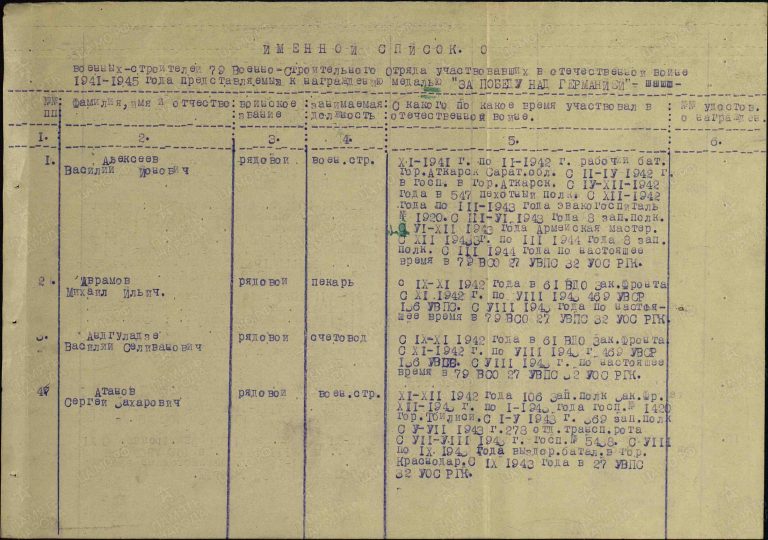 ИМЕННОЙ СПИСОК.
военных-строителей 79 Военно-Строительного Отряда участвовавших в отечественной войне
1941-1945 года представляемых к награждению медалью "ЗА ПОБЕДУ НАД ГЕРМАНИЕЙ"
№№ пп фамилия, имя и отчество воинское звание занимаемая должность С какого по какое время участвовал в отечественной войне. №№ удостов. о награжден.
1. 2. 3. 4. 5. 6.
1. Алексеев Василий рядовой воен.стр.
XI-1941 г. по II-1942 г. рабочий бат.
гор.Аткарск Сарат.обл. С II-IУ 1942 г.
в госп. в гор.Аткарск. С IУ-XII-1942
года в 547 пехотный полк. С XII-1942
года по III-1943 года эвакогоспиталь
№ 1920. С III-УI 1943 года 8 зап.полк.
С УI-XII 1943 года Армейская мастер.
С XII 1943 г. по III 1944 года 8 зап.
полк. С III 1944 года по настоящее
время в 79 ВСО 27 УВПС 32 УОС РГК.
2. Аврамов Михаил Ильич. рядовой пекарь
с IX-XI 1942 года в 61 ВДО Зак.Фронта
С XI 1942 г. по УIII 1943 469 УВСР
136 УВПС. С УIII 1943 года по настоя-
щее время в 79 ВСО 27 УВПС 32 УОС РГК.
3. Авдгуладзе Василий Селиванович рядовой счетовод
С IX-XI 1942 года в 61 ВДО Зак.Фронта.
С XI-1942 г. по УIII 1943 г. 469 УВСР
136 УВПС. С УIII 1943 г. по настоящее
время в 79 ВСО 27 УВПС 32 УОС РГК.
4. Атанов Сергей Захарович рядовой воен.стр.
XI-XII 1942 года 106 зап.полк Зак.Фр.
XII-1943 г. по I-1943 года госп.№ 1420
гор.Тбилиси. С I-У 1943 г. 369 зап.полк
С У-УII 1943 г. 278 отд.трансп.рота
С УII-УIII 1943 г. госп.№ 5438. С УIII
по IX 1943 года выздор.батал.в гор.
Краснодар. С IX 1943 года в 27 УВПС
32 УОС РГК.